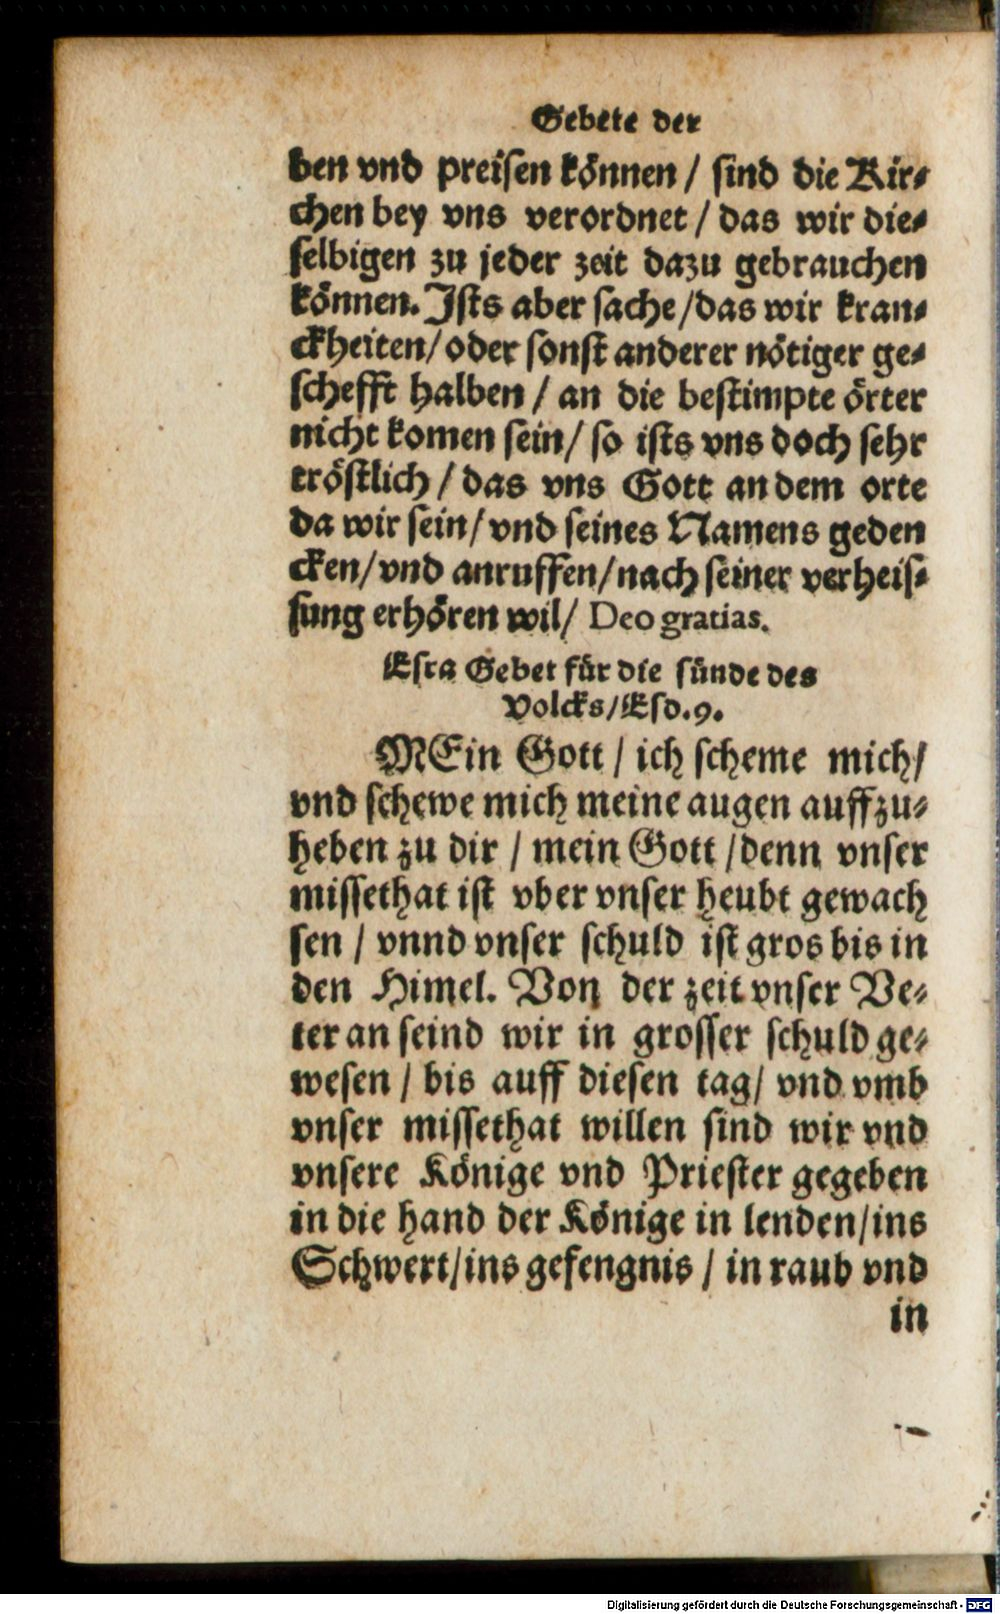 Gebete der
ben vnd preiſen können / ſind die Kir⸗
chen bey vns verordnet / das wir die⸗
ſelbigen zu jeder zeit dazu gebrauchen
können. Iſts aber ſache / das wir kran⸗
ckheiten / oder ſonſt anderer nötiger ge⸗
ſchefft halben / an die beſtimpte örter
nicht komen ſein / ſo iſts vns doch ſehr
tröſtlich / das vns Gott an dem orte
da wir ſein / vnd ſeines Namens geden
cken / vnd anruffen / nach ſeiner verheiſ⸗
ſung erhören wil / Deo gratias.
Eſra Gebet für die ſünde des
Volcks / Eſd. 9.
MEin Gott / ich ſcheme mich /
vnd ſchewe mich meine augen auffzu⸗
heben zu dir / mein Gott / denn vnſer
miſſethat iſt vber vnſer heubt gewach
ſen / vnnd vnſer ſchuld iſt gros bis in
den Himel. Von der zeit vnſer Ve⸗
ter an ſeind wir in groſſer ſchuld ge⸗
weſen / bis auff dieſen tag / vnd vmb
vnſer miſſethat willen ſind wir vnd
vnſere Könige vnd Prieſter gegeben
in die hand der Könige in lenden / ins
Schwert / ins gefengnis / in raub vnd
in
Digitalisierung gefördert durch die Deutsche Forschungsgemeinschaft - DFG